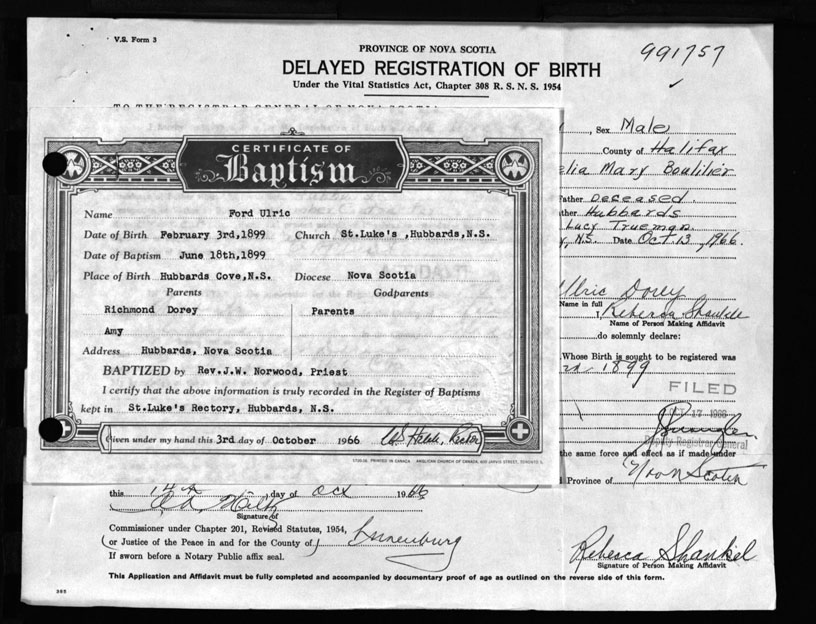 V.S. Form 3
991757
PROVINCE OF NOVA SCOTIA
DELAYED REGISTRATION OF BIRTH
Under the Vital Statistics Act, Chapter 308 R. S. N. S. 1954
TO THE REGISTRAR GENERAL OF NOVA SCOTIA
, Sex Male
County of Halifax
elia Mary Boutilier
ather Deceased
ther Hubbards
Lucy Trueman
, N.S. Date Oct 13, 1966.
CERTIFICATE OF
Baptism
Name Ford Ulric
Date of Birth February 3rd,1899 Church St.Luke's ,Hubbards,N.S.
Date of Baptism June 18th,1899
Place of Birth Hubbards Cove,N.S. Diocese Nova Scotia
Parents Godparents
Richmond Dorey Parents
Amy
Address Hubbards, Nova Scotia
BAPTIZED by Rev.J.W. Norwood, Priest
I certify that the above information is truly recorded in the Register of Baptisms
kept in St.Luke's Rectory, Hubbards, N.S.
Given under my hand this 3rd day of October 1966 Rector
PRINTED IN CANADA ANGLICAN CHURCH OF CANADA, 600 JARVIS STREET, TORONTO 5.
Ulric Dorey
Name in full
I, Rebecca Shankel
Name of Person Making Affidavit
do solemnly declare:
Whose Birth is sought to be registered was
rd 1899
FILED
OCT 17 1966
Deputy Registrar General
the same force and effect as if made under
Province of Nova Scotia
this 14th day of Oct 1966
Signature of
Commissioner under Chapter 201, Revised Statutes, 1954,
(or Justice of the Peace in and for the County of) Lunenburg
If sworn before a Notary Public affix seal.
Rebecca Shankel
Signature of Person Making Affidavit
This Application and Affidavit must be fully completed and accompanied by documentary proof of age as outlined on the reverse side of this form.